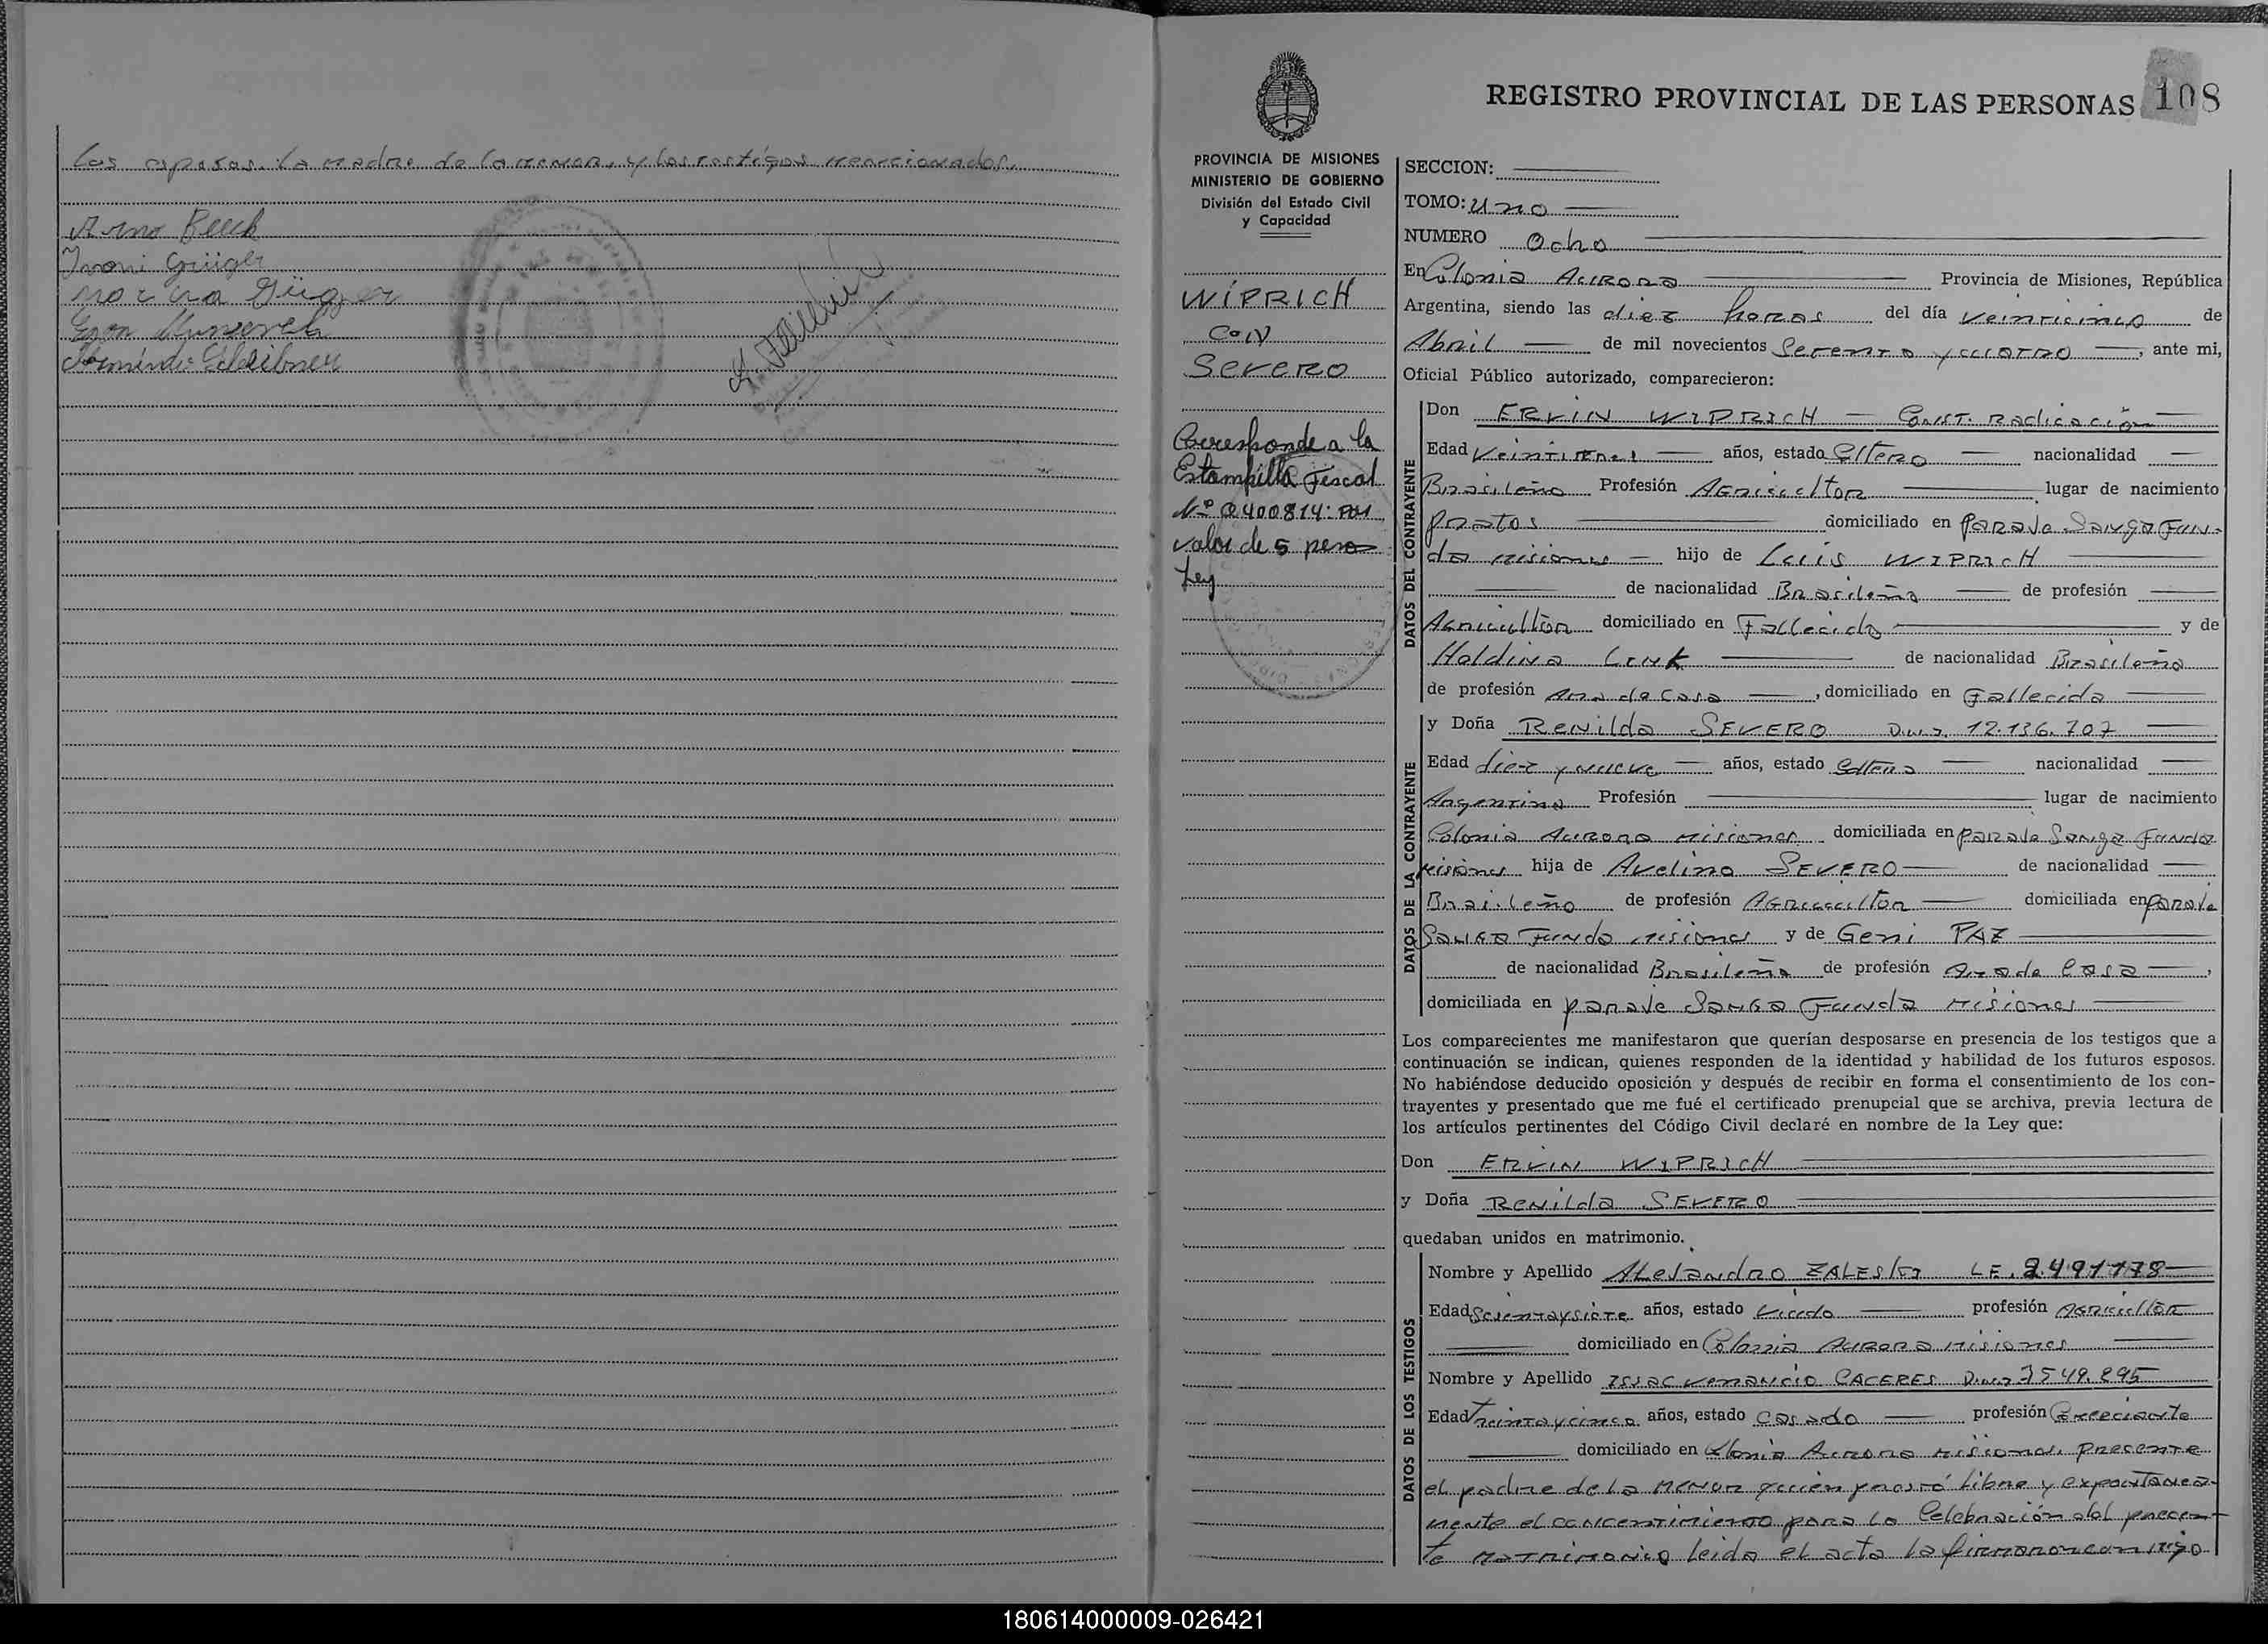 los esposos. la madre de la menor, y los testigos mencionados.
Arno Beeck
Ivoni Grüger
Egon
REGISTRO PROVINCIAL DE LAS PERSONAS 108
PROVINCIA DE MISIONES
MINISTERIO DE GOBIERNO
División del Estado Civil
y Capacidad
WIPRICH
CON
Severo
Corresponde a la
Estampilla Fiscal
Nº 0400814: por
valor de 5 pesos
Ley
SECCION:
TOMO: uno
NUMERO Ocho
En Colonia Aurora Provincia de Misiones, República
Argentina, siendo las diez horas del día veinticinco de
Abril de mil novecientos setenta y cuatro, ante mi,
Oficial Público autorizado, comparecieron:
DATOS DEL CONTRAYENTE
Don ERVIN WIPRICH Const. Radicación
Edad veintitres años, estado soltero nacionalidad
Brasileño Profesión Agricultor lugar de nacimiento
pratos domiciliado en paraje Sanga Fun-
da misiones hijo de Luis WIPRICH
de nacionalidad Brasileña de profesión
Agricultor domiciliado en Fallecido y de
Holdina Link de nacionalidad Brasileña
de profesión Ama de Casa, domiciliado en Fallecida
DATOS DE LA CONTRAYENTE
y Doña Renilda SEVERO D.N.I. 12.136.707
Edad diez y nueve años, estado Soltera nacionalidad
Argentina Profesión lugar de nacimiento
Colonia Aurora misiones domiciliada en paraje Sanga Funda
misiones hija de Avelino SEVERO de nacionalidad
Brasileño de profesión Agricultor domiciliada en paraje
Sanga Funda misiones y de Geni PAZ
de nacionalidad Brasileña de profesión Ama de Casa,
domiciliada en paraje Sanga Funda misiones
Los comparecientes me manifestaron que querían desposarse en presencia de los testigos que a
continuación se indican, quienes responden de la identidad y habilidad de los futuros esposos.
No habiéndose deducido oposición y después de recibir en forma el consentimiento de los con-
trayentes y presentado que me fué el certificado prenupcial que se archiva, previa lectura de
los artículos pertinentes del Código Civil declaré en nombre de la Ley que:
Don ERVIN WIPRICH
y Doña Renilda SEVERO
quedaban unidos en matrimonio.
DATOS DE LOS TESTIGOS
Nombre y Apellido Alejandro ZALESKI L.E. 2491778
Edad sesenta y siete años, estado viudo profesión Agricultor
domiciliado en Colonia Aurora misiones
Nombre y Apellido Issac venancio CACERES D.N.I. 7549.895
Edad treinta y cinco años, estado casado profesión Comerciante
domiciliado en Colonia Aurora misiones. presente
el padre de la menor quien prestó libre y expontanea-
mente el concentimiento para la celebración del presen-
te matrimonio leida el acta la firmaron conmigo
180614000009-026421